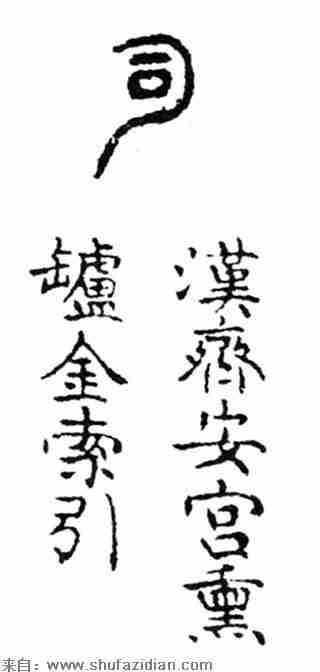 司
漢齊安宮熏
鑪金索引
来自：www.shufazidian.com